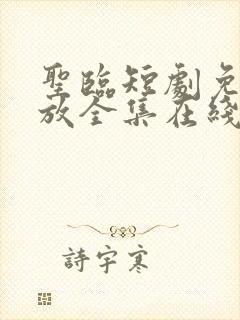 聖臨短劇免
放全集在綫
詩宇寒